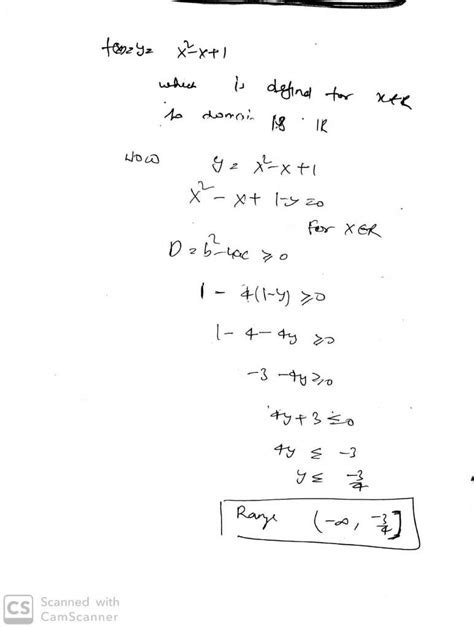 f(x)=y= x²-x+1
which is defined for x∈R
so domain is IR
Now y = x²-x+1
x²-x+1-y=0
For x∈R
D = b²-4ac ≥ 0
1 - 4(1-y) ≥0
1-4-4y ≥0
-3-4y≥0
4y+3≤0
4y ≤ -3
y≤ -3/4
Range (-∞, -3/4]
CS Scanned with
CamScanner